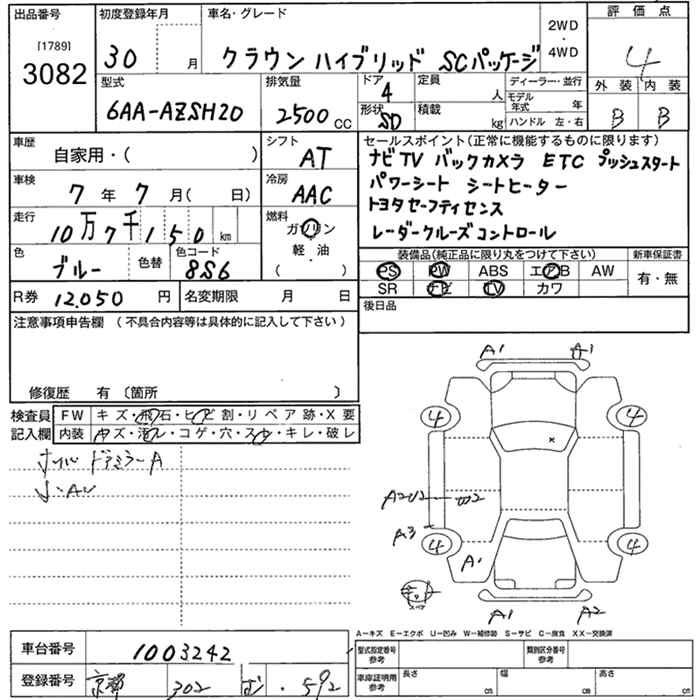 出品番号 初度登録年月 車名・グレード 2WD・4WD 評価点
[1789]
3082 30 月 クラウン ハイブリッド SCパッケージ 4
型式 排気量 ドア 定員 ディーラー・並行 外装 内装
6AA-AZSH20 2500 CC 4 人 モデル年式 年 B B
形状 積載 ハンドル 左・右
SD kg
車歴 シフト セールスポイント(正常に機能するものに限ります)
自家用・( ) AT ナビ TV バックカメラ ETC プッシュスタート
車検 冷房 パワーシート シートヒーター
7 年 7 月( 日) AAC トヨタセーフティセンス
走行 燃料 レーダークルーズコントロール
10万7千150 km ガソリン
軽・油
( )
色 色替 色コード 装備品(純正品に限り丸をつけて下さい) 新車保証書
ブルー 8S6 PS PW ABS エアB AW 有・無
R券 12,050 円 名変期限 月 日 SR ナビ TV カワ
注意事項申告欄 (不具合内容等は具体的に記入して下さい) 後日品
修復歴 有 〔箇所 〕
検査員 FW キズ・飛石・ヒビ割・リペア跡・X要
記入欄 内装 キズ・汚レ・コゲ・穴・スレ・キレ・破レ
ドアミラーA
A1 A1
4 4
A2U2 W2
A3
4 4
A1
スペア
A1 A2
A-キズ E-エクボ U-凹み W-補修跡 S-サビ C-腐食 XX-交換済
車台番号 1003242 型式指定番号 参考 類別区分番号 参考
登録番号 京都 302 ・592 車庫証明用 参考 長さ cm 幅 cm 高さ cm